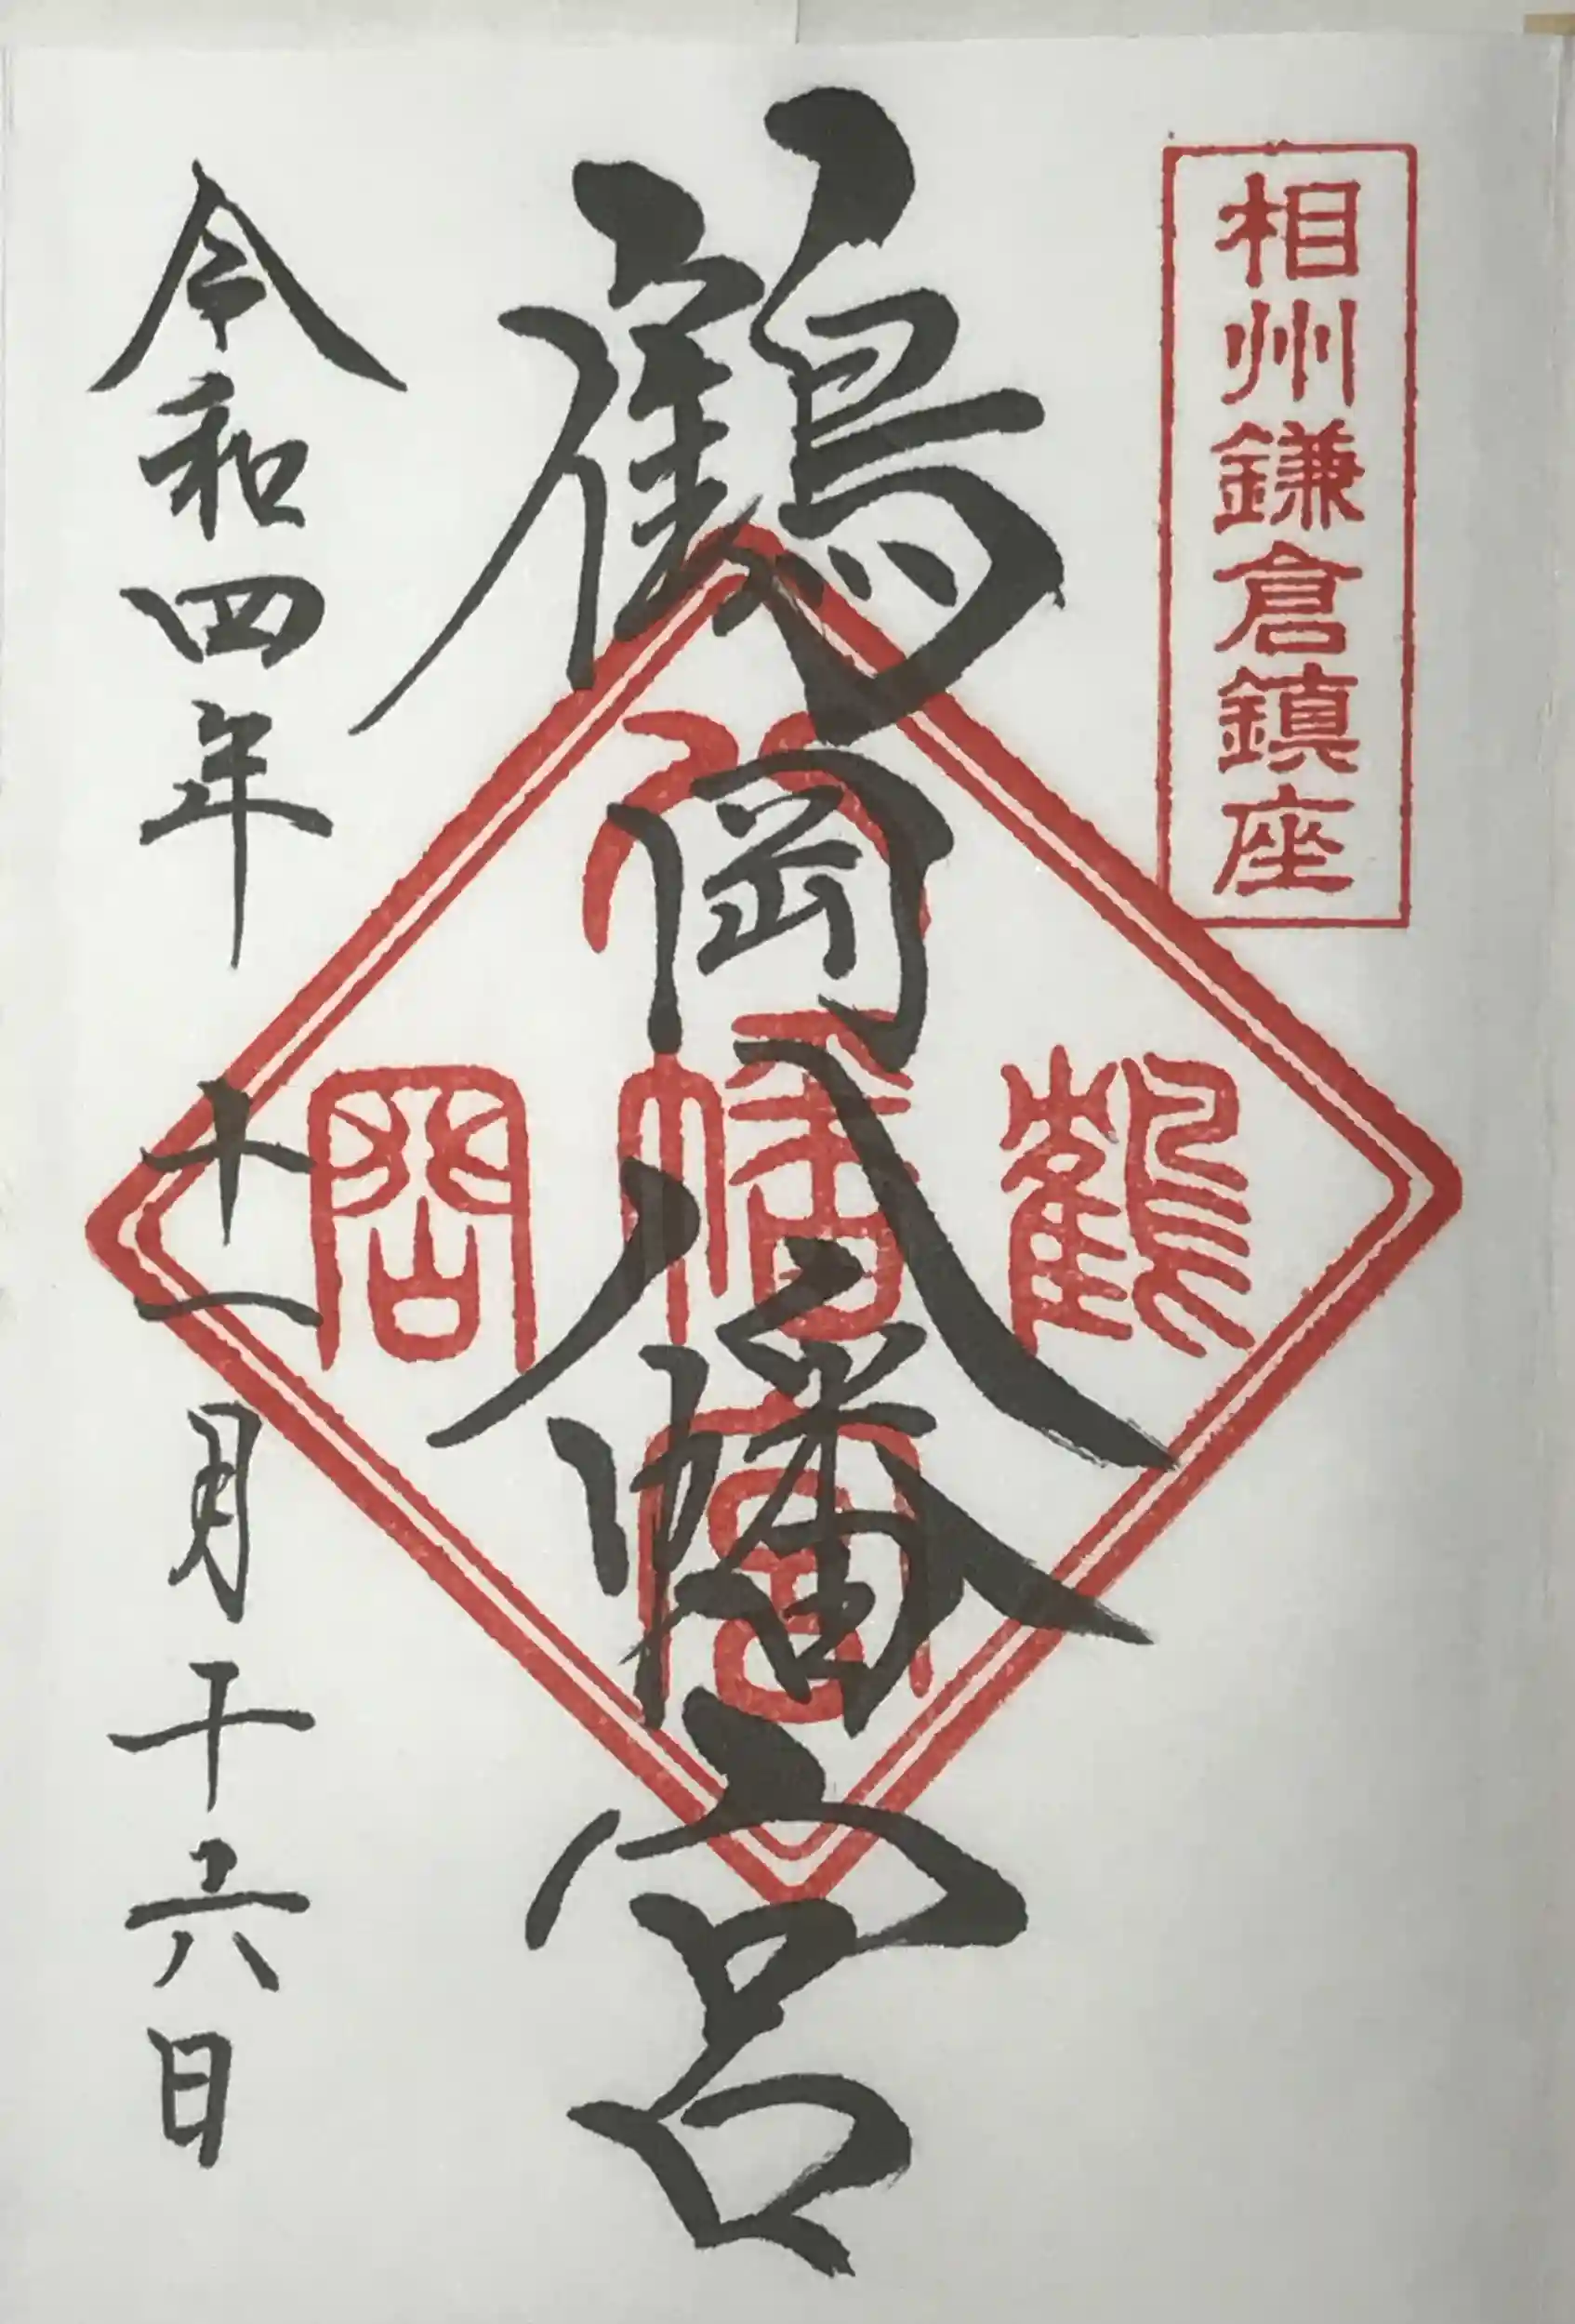 相州鎌倉鎮座
鶴岡八幡宮
鶴
八幡宮
岡
令和四年十一月十六日